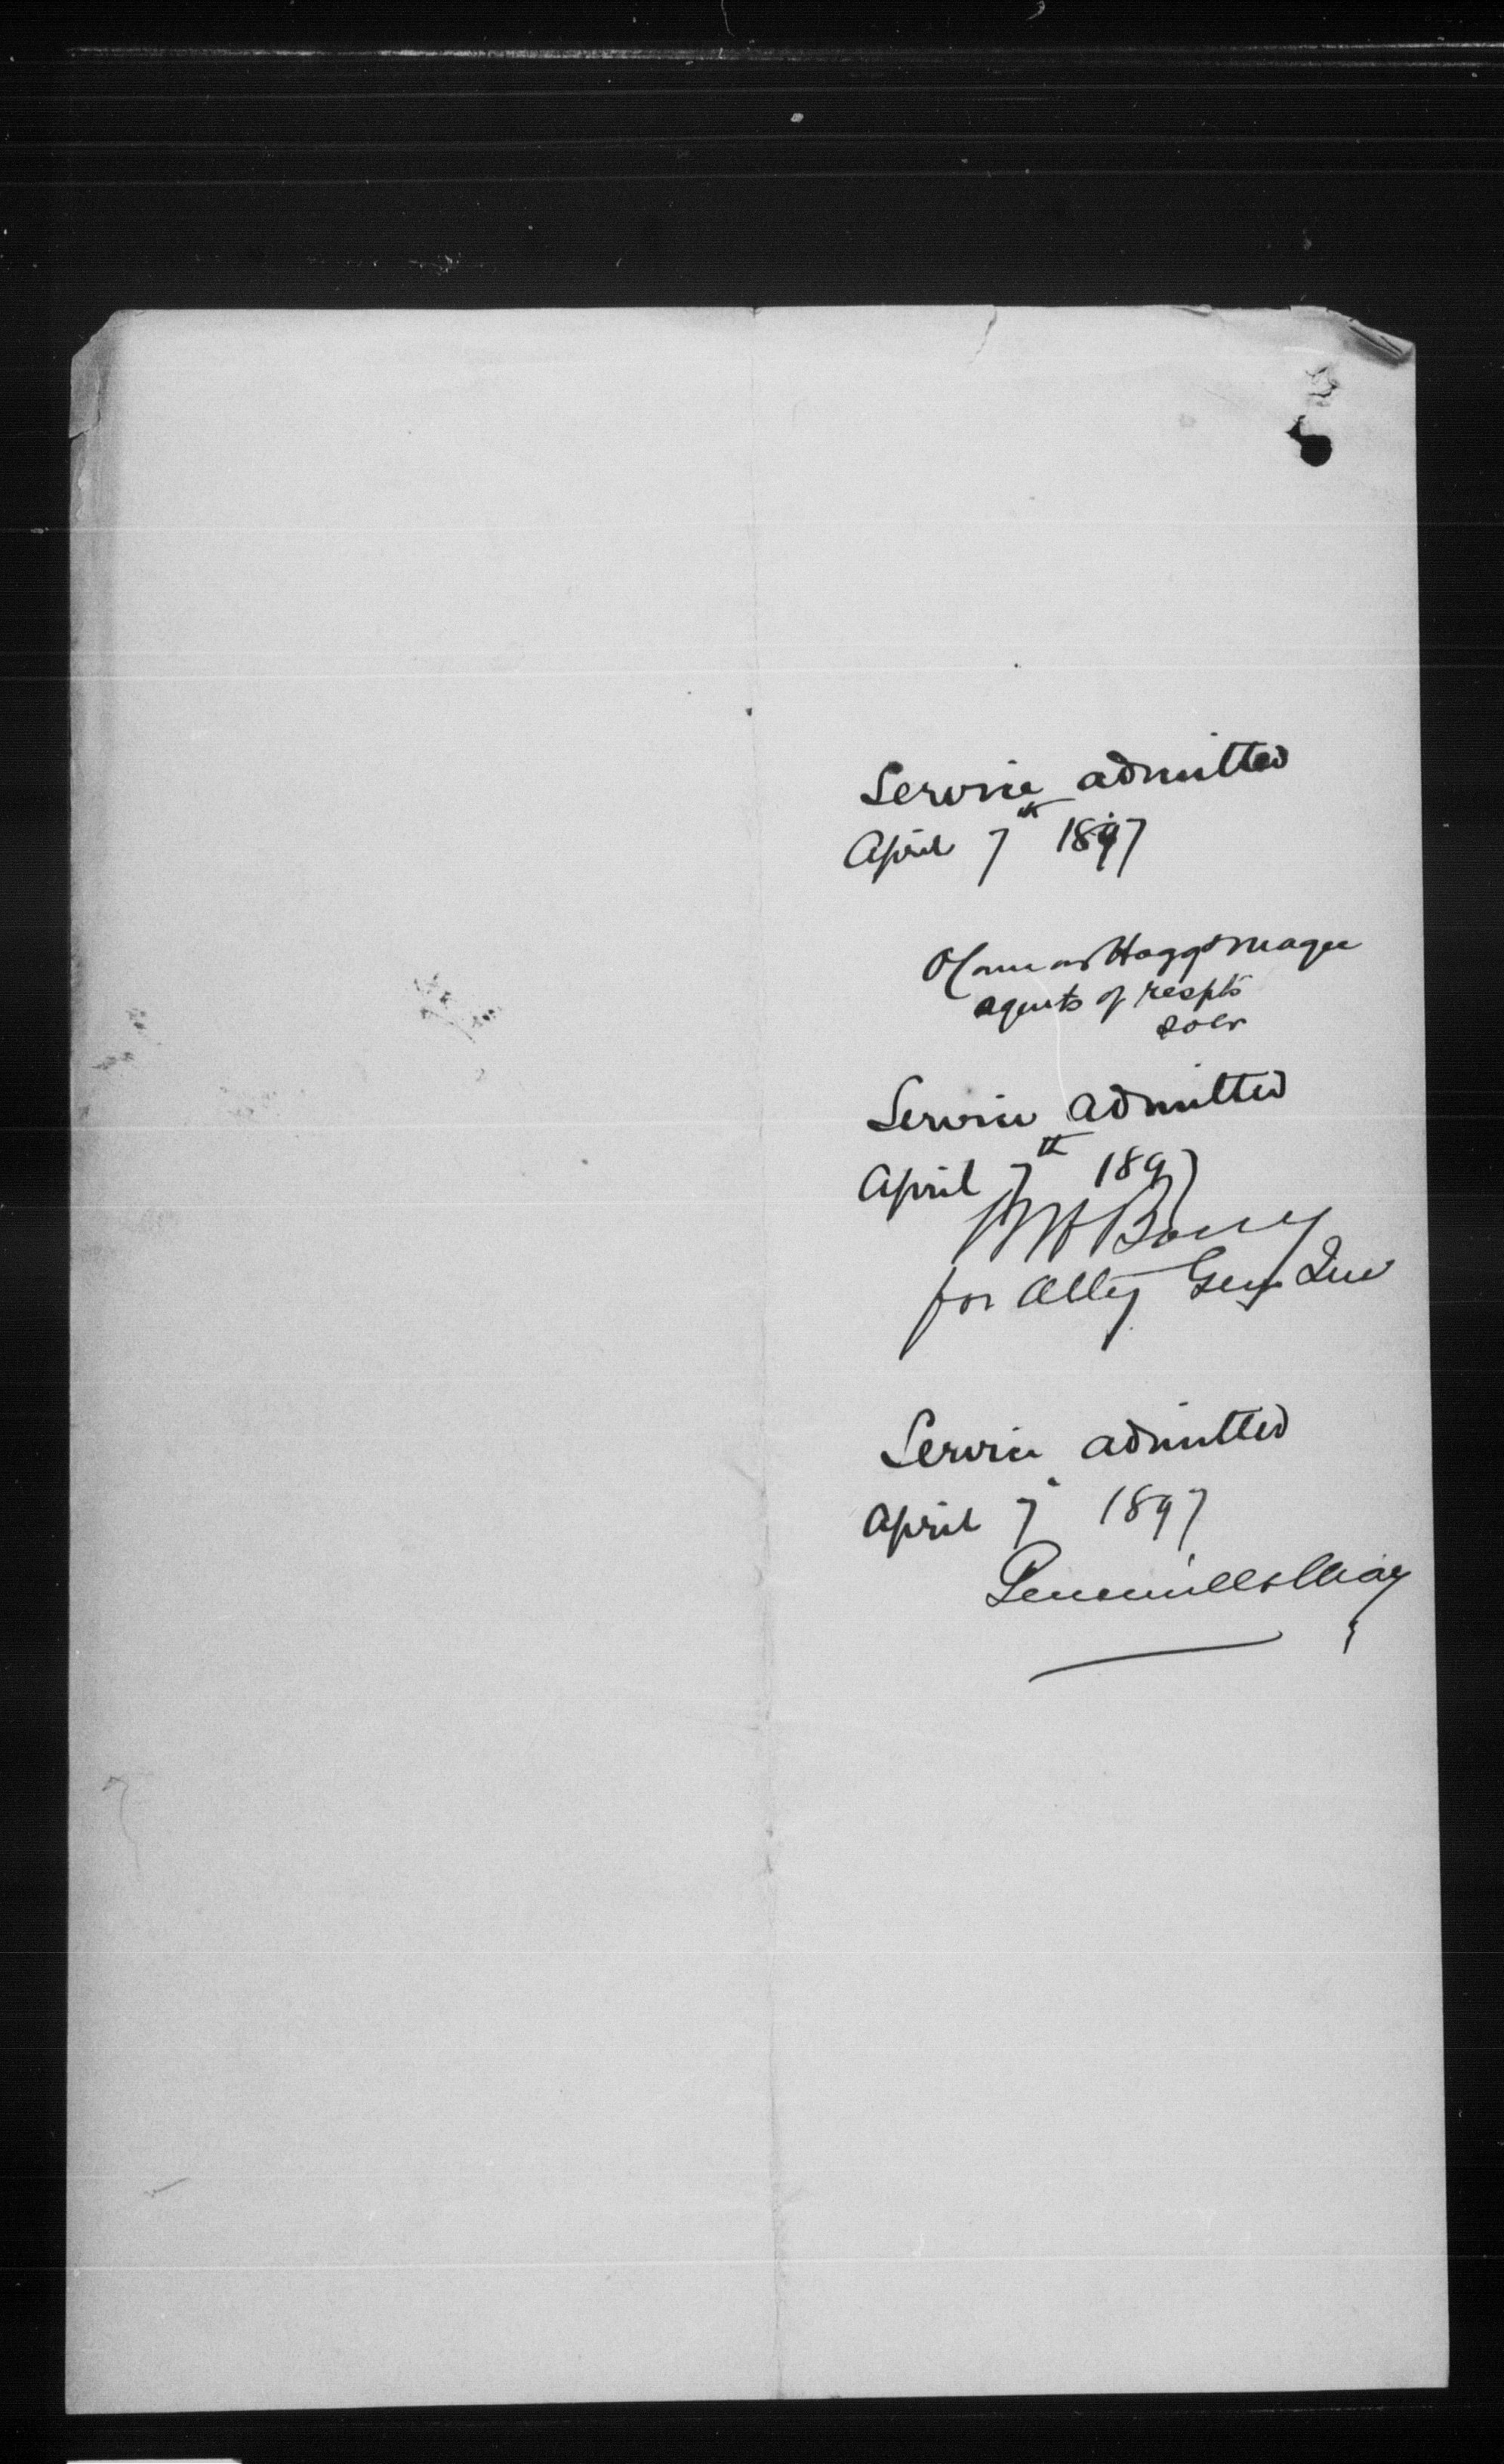 Service admitted
April 7th 1897
O'Connor Hogg & Magee
agents of respts
solr
Service admitted
April 7th 1897
for Atty Genl Que
Service admitted
April 7" 1897
Gemmill & May